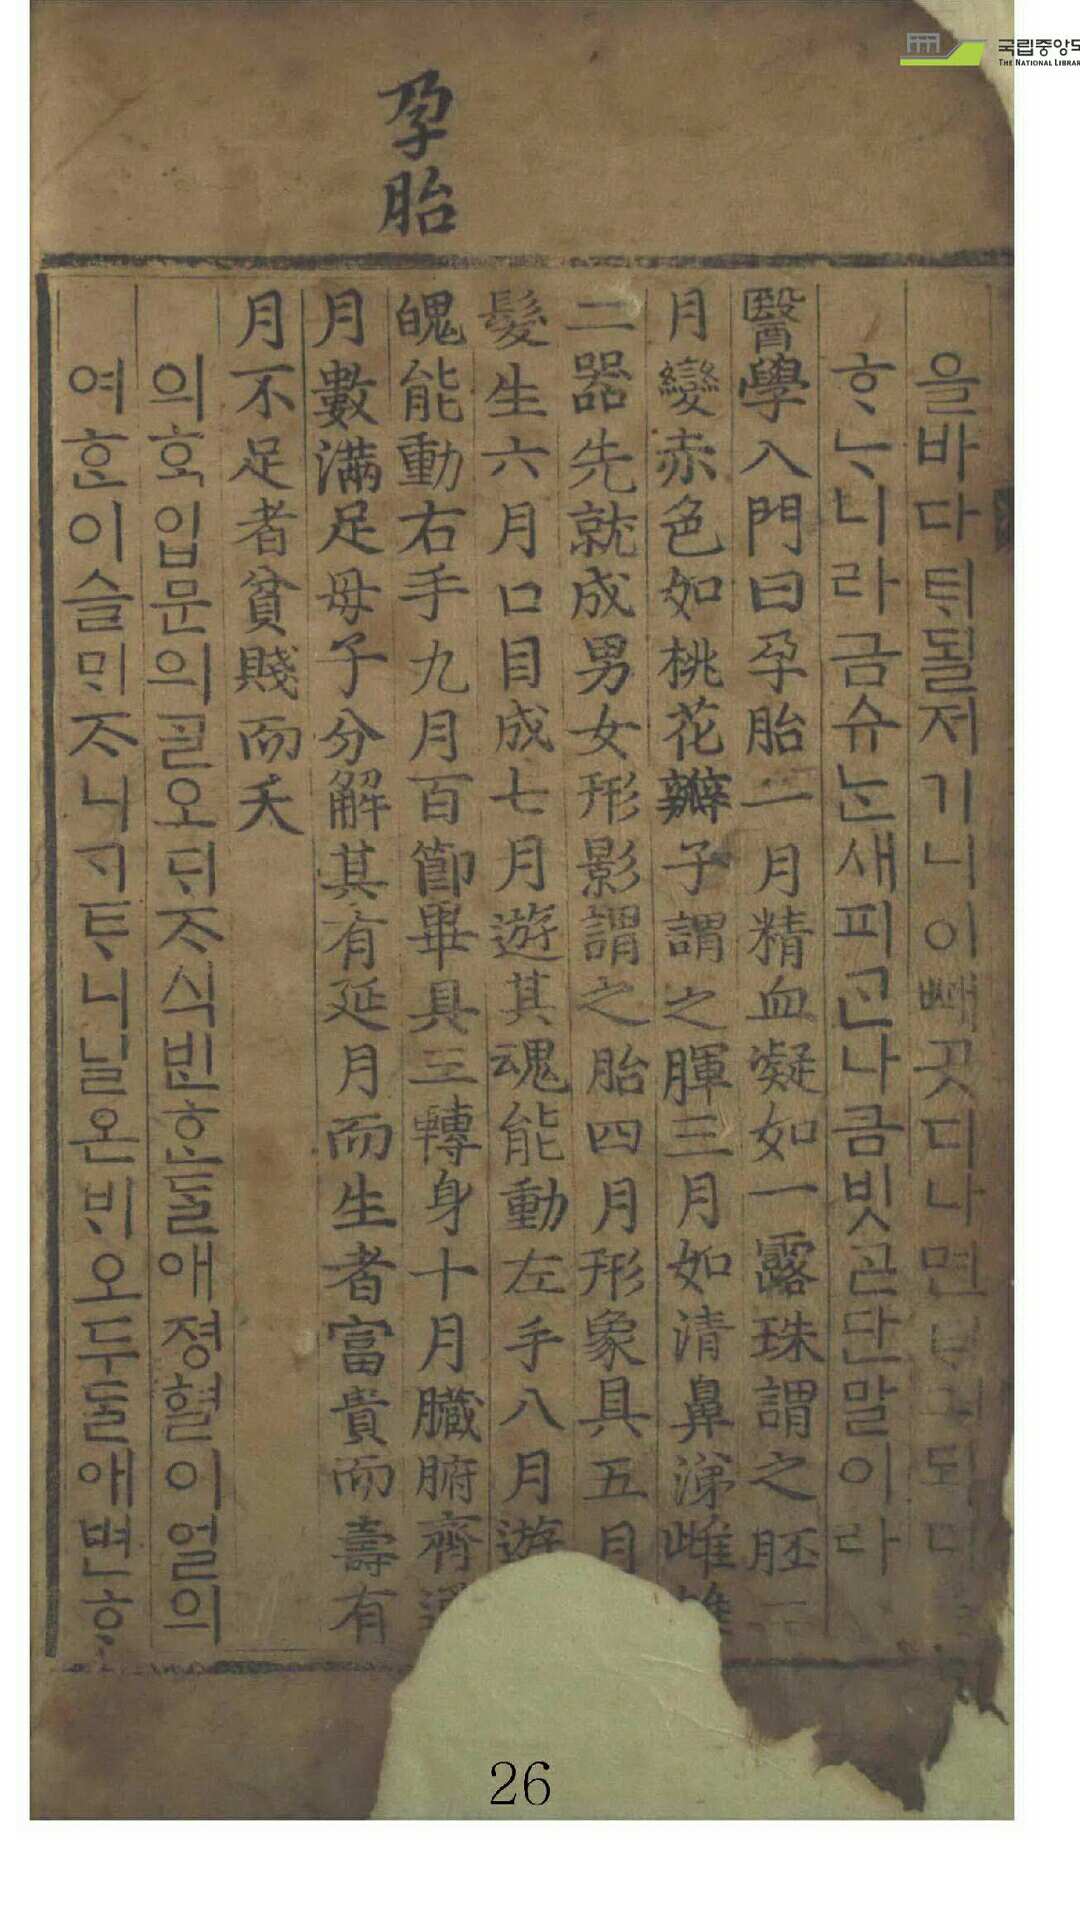 국립중앙도
THE NATIONAL LIBRAR
孕胎
을바다ᄐᆡ될저기니이ᄣᅢ곳디나면
ᄒᆞᄂᆞ니라금슈ᄂᆞᆫ새피곤나쿰빗곧단말이라
醫學入門曰孕胎一月精血凝如一露珠謂之胚二
月變赤色如桃花瓣子謂之腪三月如清鼻涕雌雄
二器先就成男女形影謂之胎四月形象具五月
髮生六月口目成七月遊其魂能動左手八月遊
魄能動右手九月百節畢具三轉身十月臟腑齊通
月數滿足母子分解其有延月而生者富貴而壽有
月不足者貧賤而夭
의ᄒᆞᆨ입문의ᄀᆞᆯ오ᄃᆡᄌᆞ식ᄇᆡᆫᄒᆞᆫᄃᆞᆯ애졍혈이얼의
여ᄒᆞᆫ이슬ᄆᆡᄌᆞ니ᄀᆞᄐᆞ니닐온ᄇᆡ오두ᄃᆞᆯ애변ᄒᆞ
26